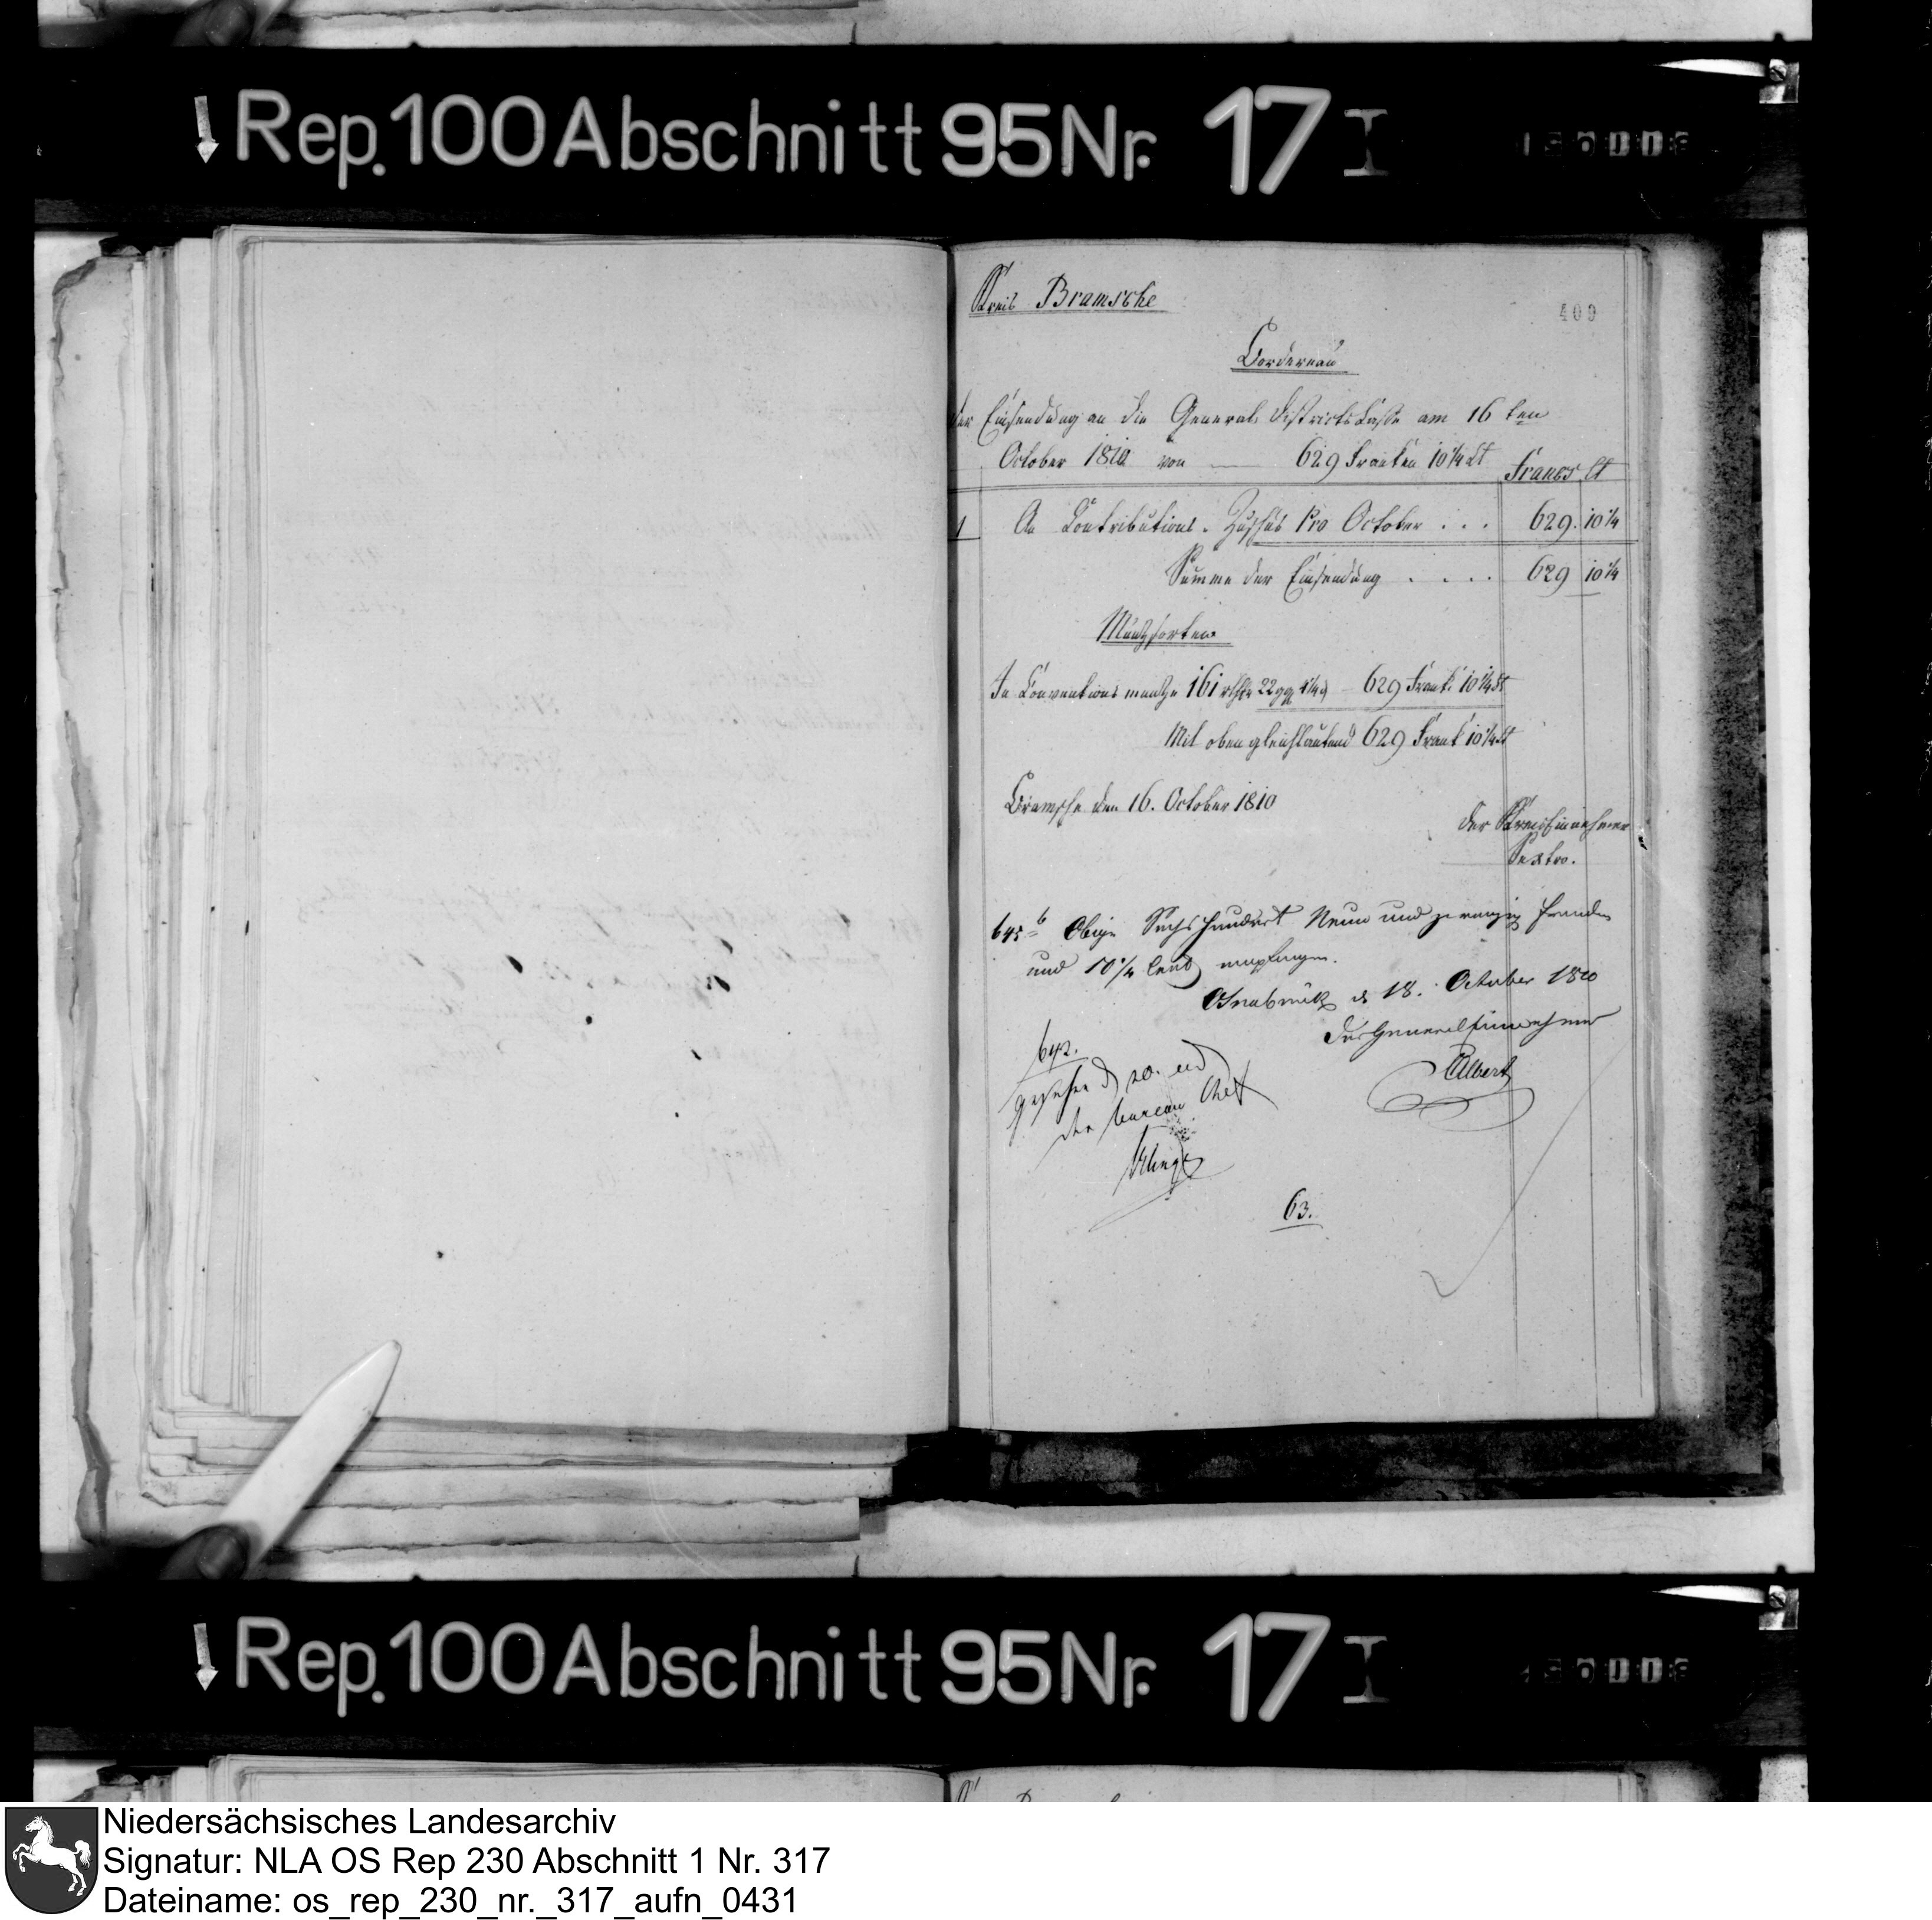 Rep. 100 Abschnitt 95 Nr. 17 I
Kreis Bramsche
409
Bordereau
der Einsendung an die General Districts Casse am 16 ten
October 1810 von 629 Franken 10 1/4 Ct
Francs Ct
1 An Contributions Zuschus Pro October . . . 629. 10 1/4
Summe der Einsendung . . . . 629 10 1/4
Müntzsorten
In Conventions muntze 161 rthlr 22 gg 4 1/4 d 629 Frank. 10 1/4 Ct
Mit oben gleichlautend 629 Frank 10 1/4 Ct
Bramsche den 16. October 1810
Der Kreiseinnehmer
Sextro.
645 b Obige Sechs hundert Neun und zwanzig Franken
und 10 1/4 Cent empfangen.
Osnabrück d 18. October 1810
Der Generaleinnehmer
Albert
642.
gesehen d 20.
der bureau Chef
63.
Rep. 100 Abschnitt 95 Nr. 17 I
Niedersächsisches Landesarchiv
Signatur: NLA OS Rep 230 Abschnitt 1 Nr. 317
Dateiname: os_rep_230_nr._317_aufn_0431